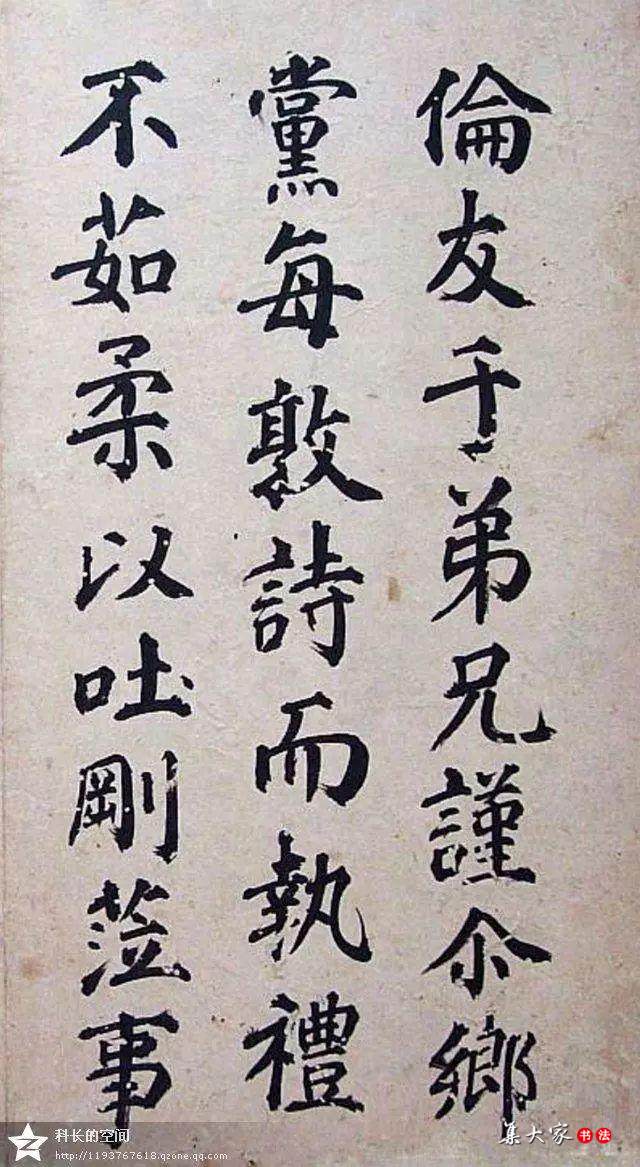 倫友于弟兄謹尒鄉
黨每敦詩而執禮
不茹柔以吐剛蒞事
科长的空间
http://1193767618.qzone.qq.com
集大家书法